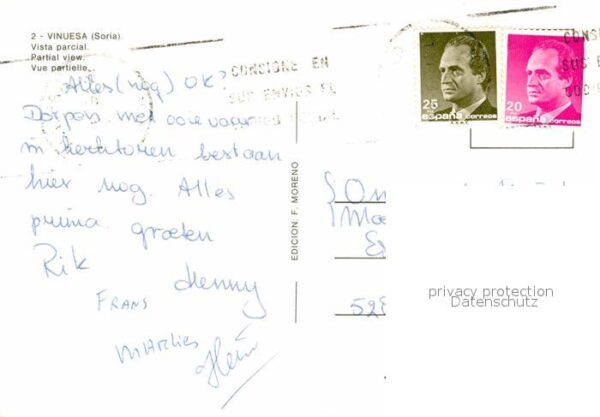 2 - VINUESA (Soria)
Vista parcial.
Partial view.
Vue partielle.
Alles (nog) OK?
Dorpen met ooievaar
in kerktoren bestaan
hier nog. Alles
prima groeten
Rik Henny
FRANS
MARLIES
Hein
CONSIGNE EN
SUS ENVIOS EL
EDICION: F. MORENO
25
españa correos
20
españa correos
CONS
SUS E
528
privacy protection
Datenschutz